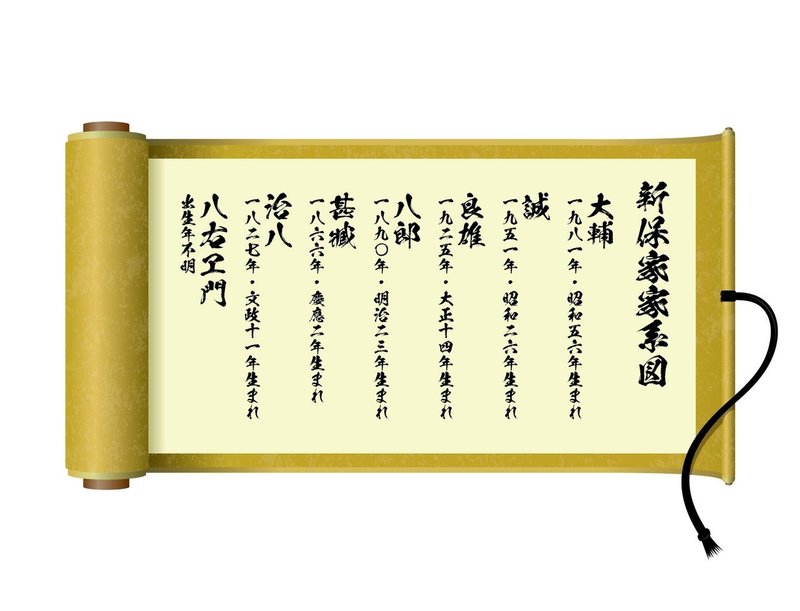 新保家家系図
大輔
一九八一年・昭和五六年生まれ
誠
一九五一年・昭和二六年生まれ
良雄
一九二五年・大正十四年生まれ
八郎
一八九〇年・明治二三年生まれ
甚蔵
一八六六年・慶應二年生まれ
治八
一八二七年・文政十一年生まれ
八右ヱ門
出生年不明